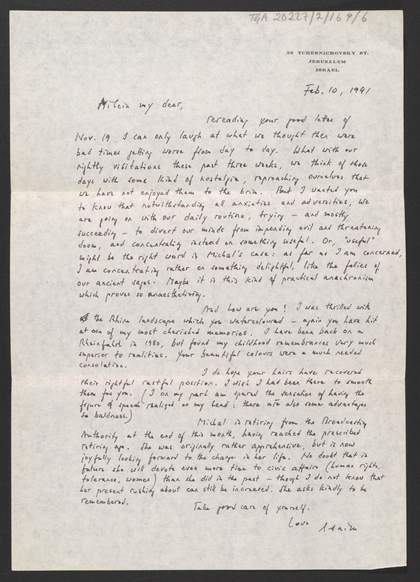 TGA 20227/2/169/6
38 TCHERNICHOVSKY ST.
JERUSALEM
ISRAEL
Feb. 10, 1991
my dear,
rereading your good letter of
Nov. 19 I can only laugh at what we thought then were
bad times getting worse from day to day. What with our
nightly visitations these past three weeks, we think of those
days with some kind of nostalgia, reproaching ourselves that
we have not enjoyed them to the brim. But I wanted you
to know that notwithstanding all anxieties and adversities, we
are going on with our daily routine, trying – and mostly
succeeding – to divert our minds from impending evil and threatening
doom, and concentrating instead on something useful. Or, "useful"
might be the right word in Michal's case: as far as I am concerned,
I am concentrating rather on something delightful, like the fables of
our ancient sages. Maybe it is this kind of practical anachronism
which proves so anaesthetising.
And how are you? I was thrilled with
the Rhine landscape which you watercoloured – again you have hit
at one of my most cherished memories. I have been back on a
Rheinfahrt in 1980, but found my childhood remembrances very much
superior to realities. Your beautiful colours were a much needed
consolation.
I do hope your hairs have recovered
their rightful restful position. I wish I had been there to smooth
them for you. (I on my part am spared the sensation of having the
figure of speech realized on my head: there are also some advantages
to baldness)
Michal is retiring from the Broadcasting
Authority at the end of this month, having reached the prescribed
retiring age. She was originally rather apprehensive, but is now
joyfully looking forward to the change in her life. No doubt that in
future she will devote even more time to civic affairs (human rights,
tolerance, women) than she did in the past – though I do not know that
her present rushing about can still be increased. She asks kindly to be
remembered.
Take good care of yourself.
Love